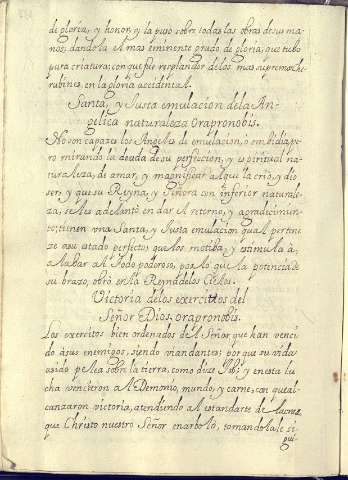 de gloria, y honor, y la puso sobre todas las obras de sus ma-
nos; dandola el mas eminente grado de gloria, que tubo
pura criatura: con que fue resplandor de los mas supremos che-
rubines, en la gloria accidental.
Santa, y Justa emulacion de la An-
gelica naturaleza Orapronobis.
No son capazes los Angeles de emulacion, o embidia; pe-
ro mirando la deuda de su perfeccion, y espiritual na-
turaleza, de amar, y magnificar a aquel que la crio, y dio
ser; y que su Reyna, y Señora con inferior naturale-
za, se les adelantò en dar el retorno, y agradecimien-
to; tienen vna Santa, y Justa emulacion qual pertene-
ze a su estado perfecto, que los motiba, y estimula à
alabar al Todo poderoso, por lo que la potencia de
su brazo, obrò en la Reyna de los Cielos.
Victoria de los exercitos del
Señor Dios, orapronobis.
Los exercitos bien ordenados del Señor que han venci-
do à sus enemigos, siendo viandantes; por que su vida
a sido pelea sobre la tierra, como dize Job; y en esta lu-
cha vencieron al Demonio, mundo, y carne; con que al-
canzaron victoria, atendiendo al estandarte de la cruz,
que Christo nuestro Señor enarbolò, tomandola le si-
gui-